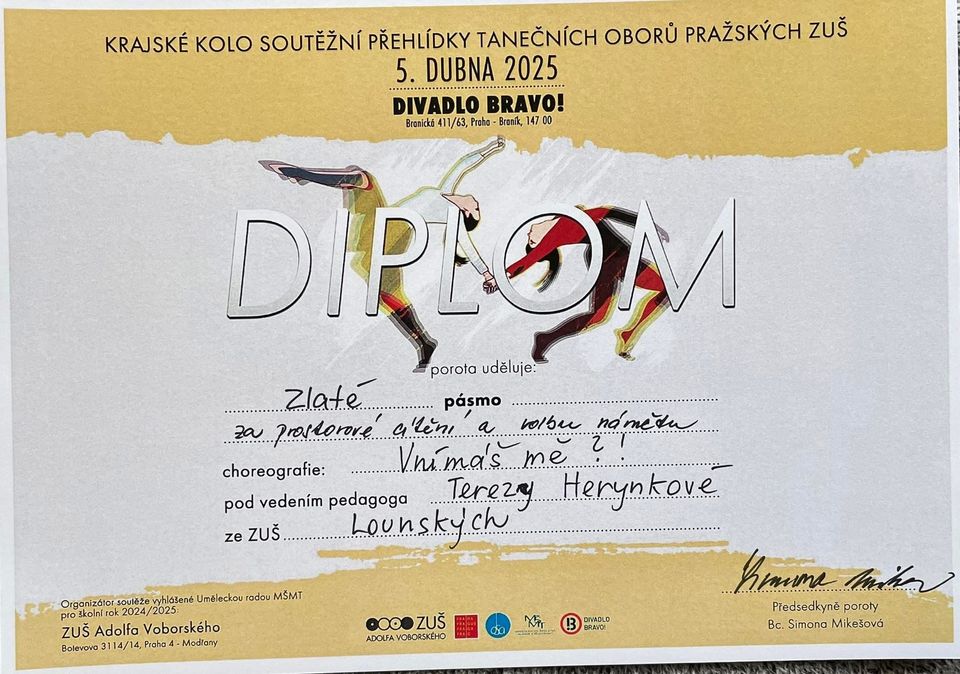 KRAJSKÉ KOLO SOUTĚŽNÍ PŘEHLÍDKY TANEČNÍCH OBORŮ PRAŽSKÝCH ZUŠ
5. DUBNA 2025
DIVADLO BRAVO!
Branická 411/63, Praha - Braník, 147 00
DIPLOM
porota uděluje:
Zlaté pásmo
za prostorové cítění a volbu námětu
choreografie: Vnímáš mě?!
pod vedením pedagoga Terezy Herynkové
ze ZUŠ Lounských
Organizátor soutěže vyhlášené Uměleckou radou MŠMT
pro školní rok 2024/2025:
ZUŠ Adolfa Voborského
Botevova 3114/14, Praha 4 - Modřany
ZUŠ
ADOLFA VOBORSKÉHO
DIVADLO
BRAVO!
Předsedkyně poroty
Bc. Simona Mikešová